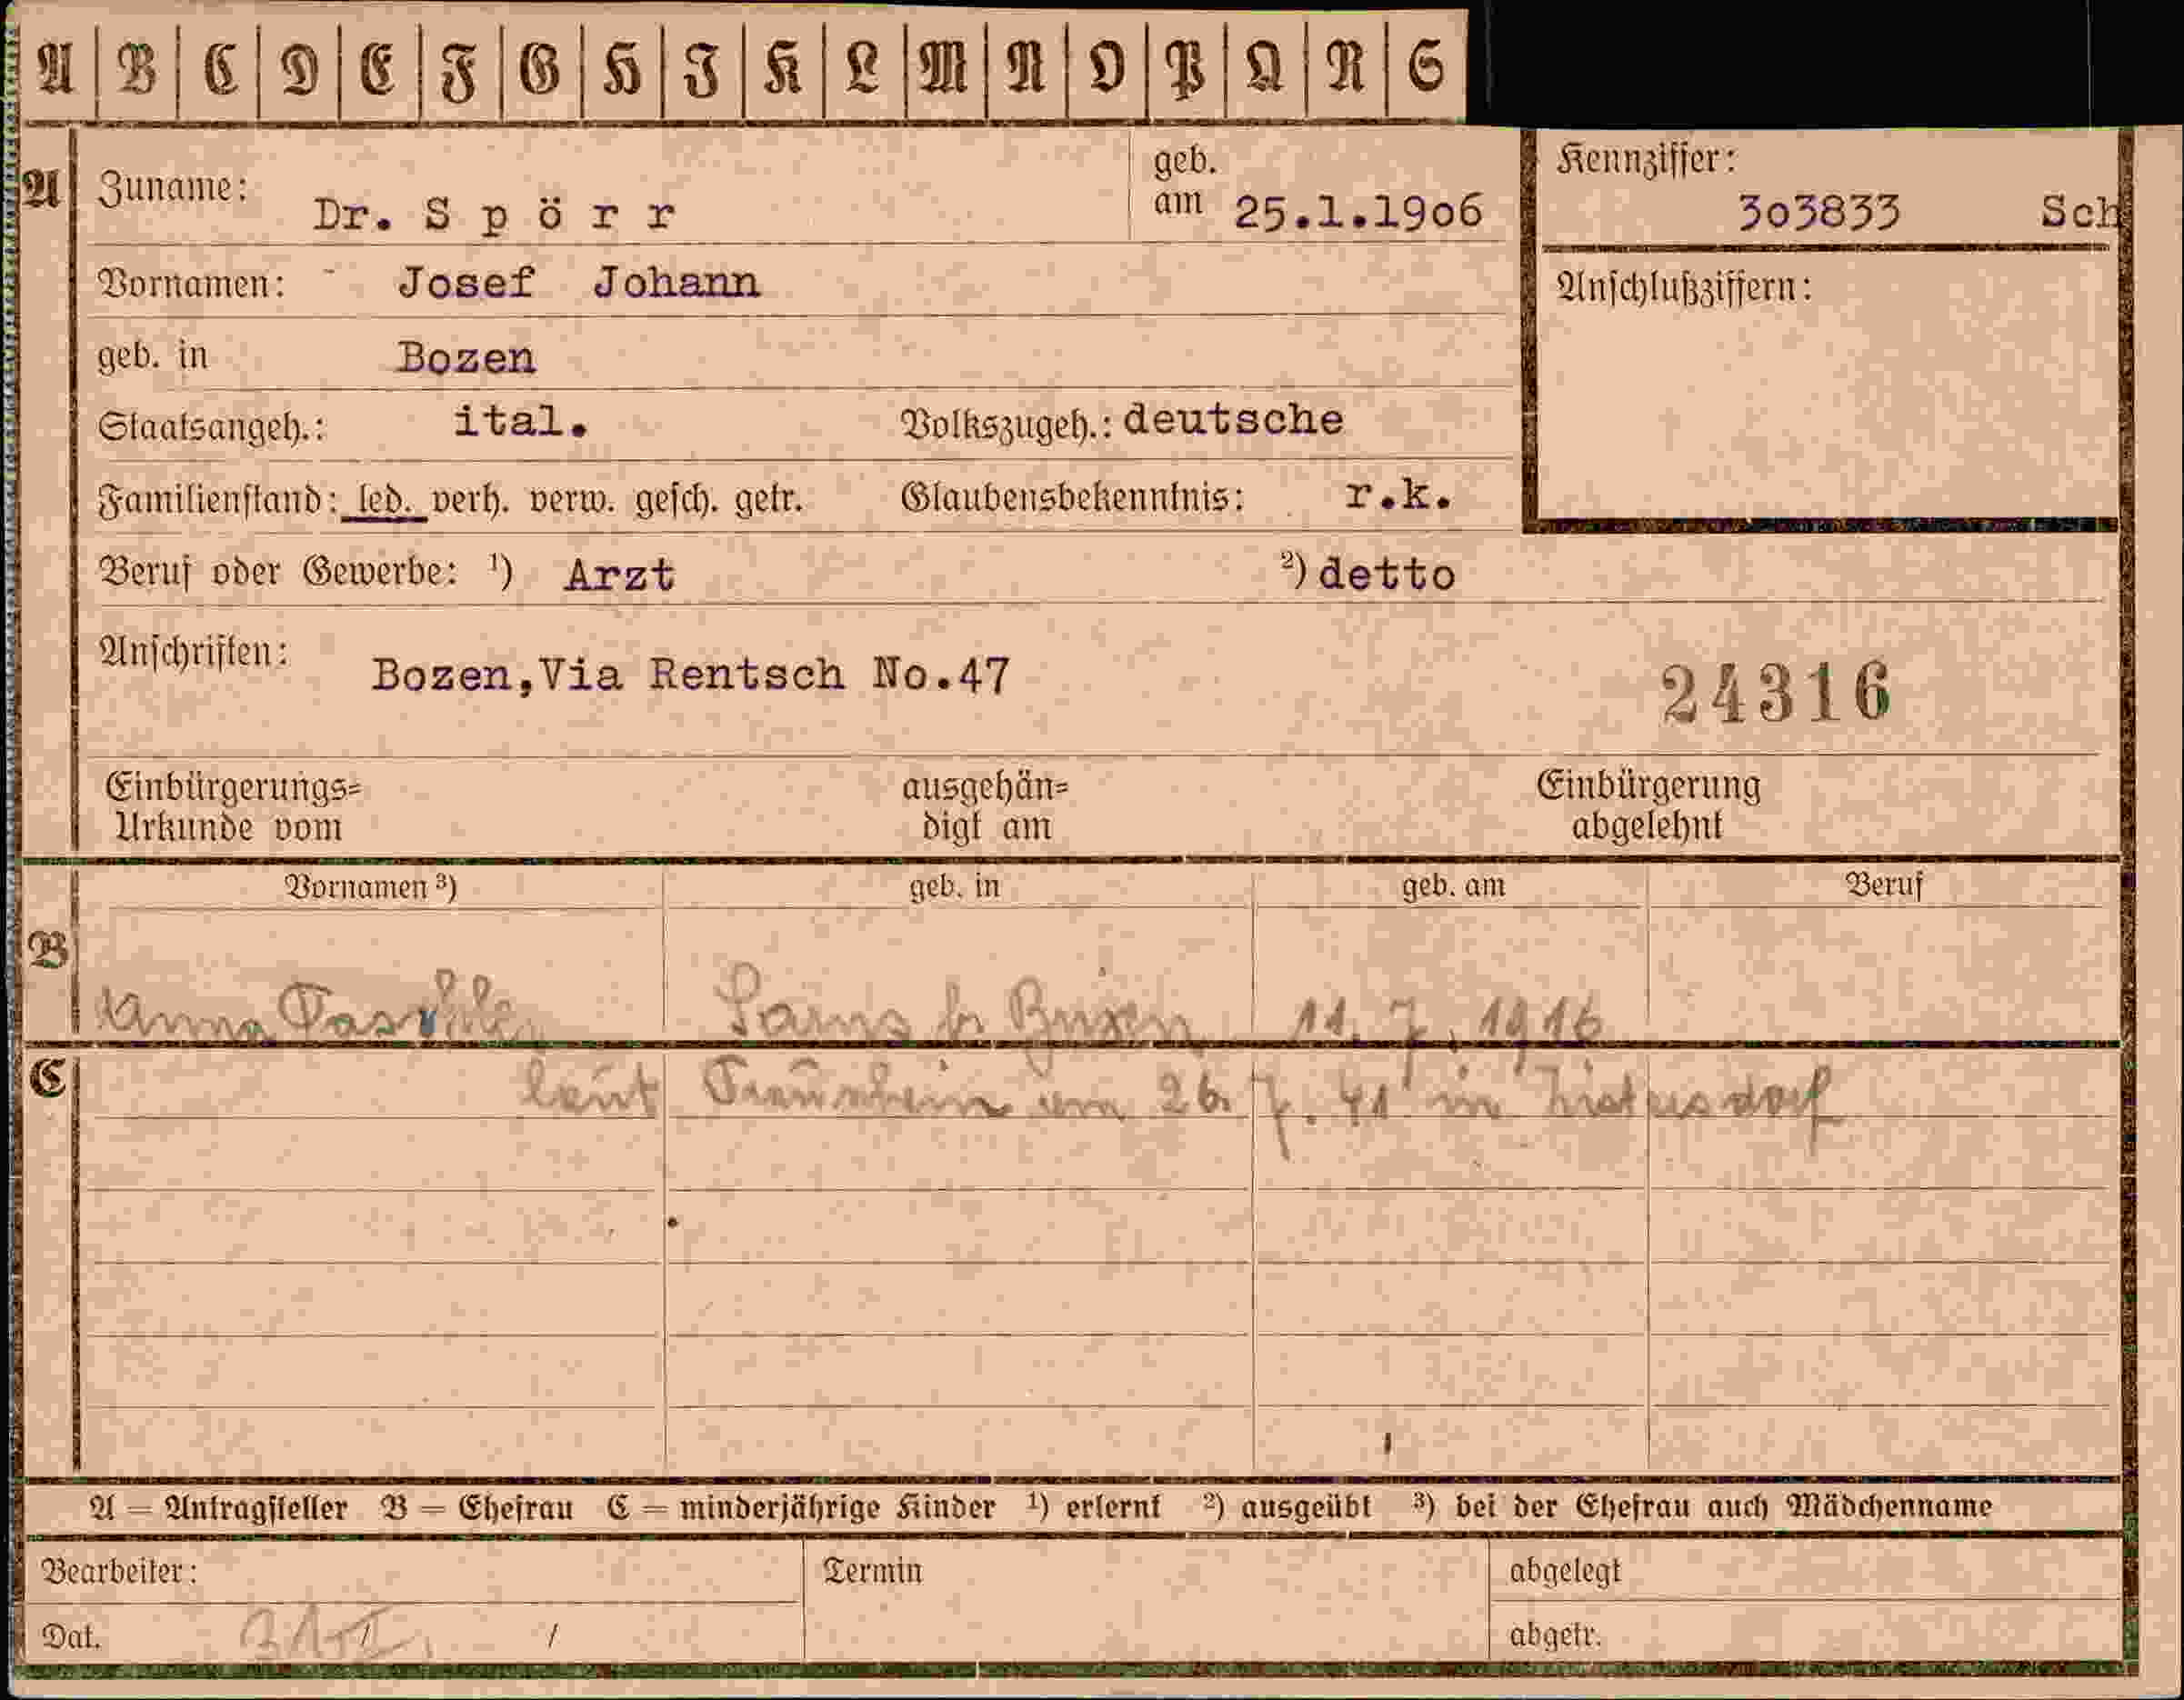 A B C D E F G H I K L M N O P Q R S
A Zuname: Dr. S p ö r r geb. am 25.1.1906
Kennziffer: 303833 Sch
Vornamen: Josef Johann
Anschlußziffern:
geb. in Bozen
Staatsangeh.: ital. Volkszugeh.: deutsche
Familienstand: led. verh. verw. gesch. getr. Glaubensbekenntnis: r.k.
Beruf oder Gewerbe: ¹) Arzt ²) detto
Anschriften: Bozen,Via Rentsch No.47
24316
Einbürgerungs= ausgehän= Einbürgerung
Urkunde vom digt am abgelehnt
Vornamen ³) geb. in geb. am Beruf
B Anna Sarns b. Brixen 11. 7. 1916
C laut Trauschein am 26. 7. 41 in Zistersdorf
A = Antragsteller B = Ehefrau C = minderjährige Kinder ¹) erlernt ²) ausgeübt ³) bei der Ehefrau auch Mädchenname
Bearbeiter: Termin abgelegt
Dat. / / abgetr.